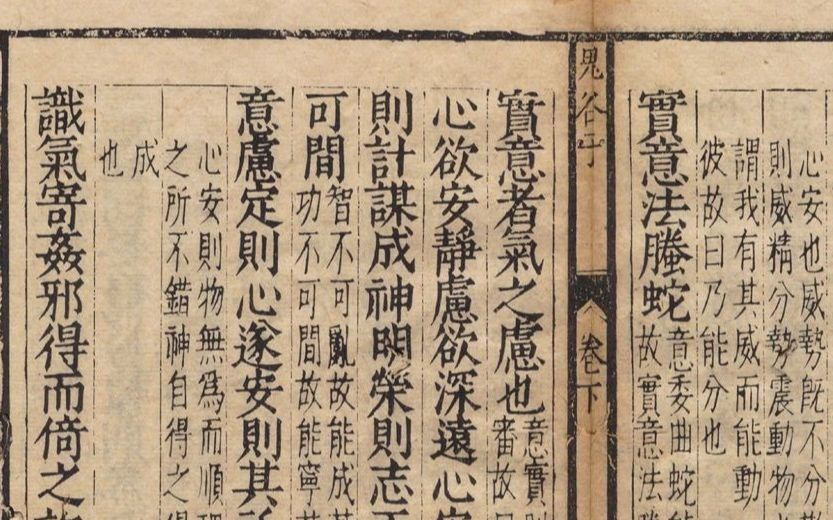 心安也威勢既不分
則威精分勢震動物
謂我有其威而能動
彼故曰乃能分也
實意法螣蛇
意委曲蛇能
故實意法
鬼谷子 卷下
實意者氣之慮也
意實則
審故
心欲安靜慮欲深遠心
則計謀成神明榮則志
可間
智不可亂故能成
功不可間故能寧
意慮定則心遂安則其
心安則物無爲而順理
之所不錯神自得之得
成
也
識氣寄姦邪得而倚之